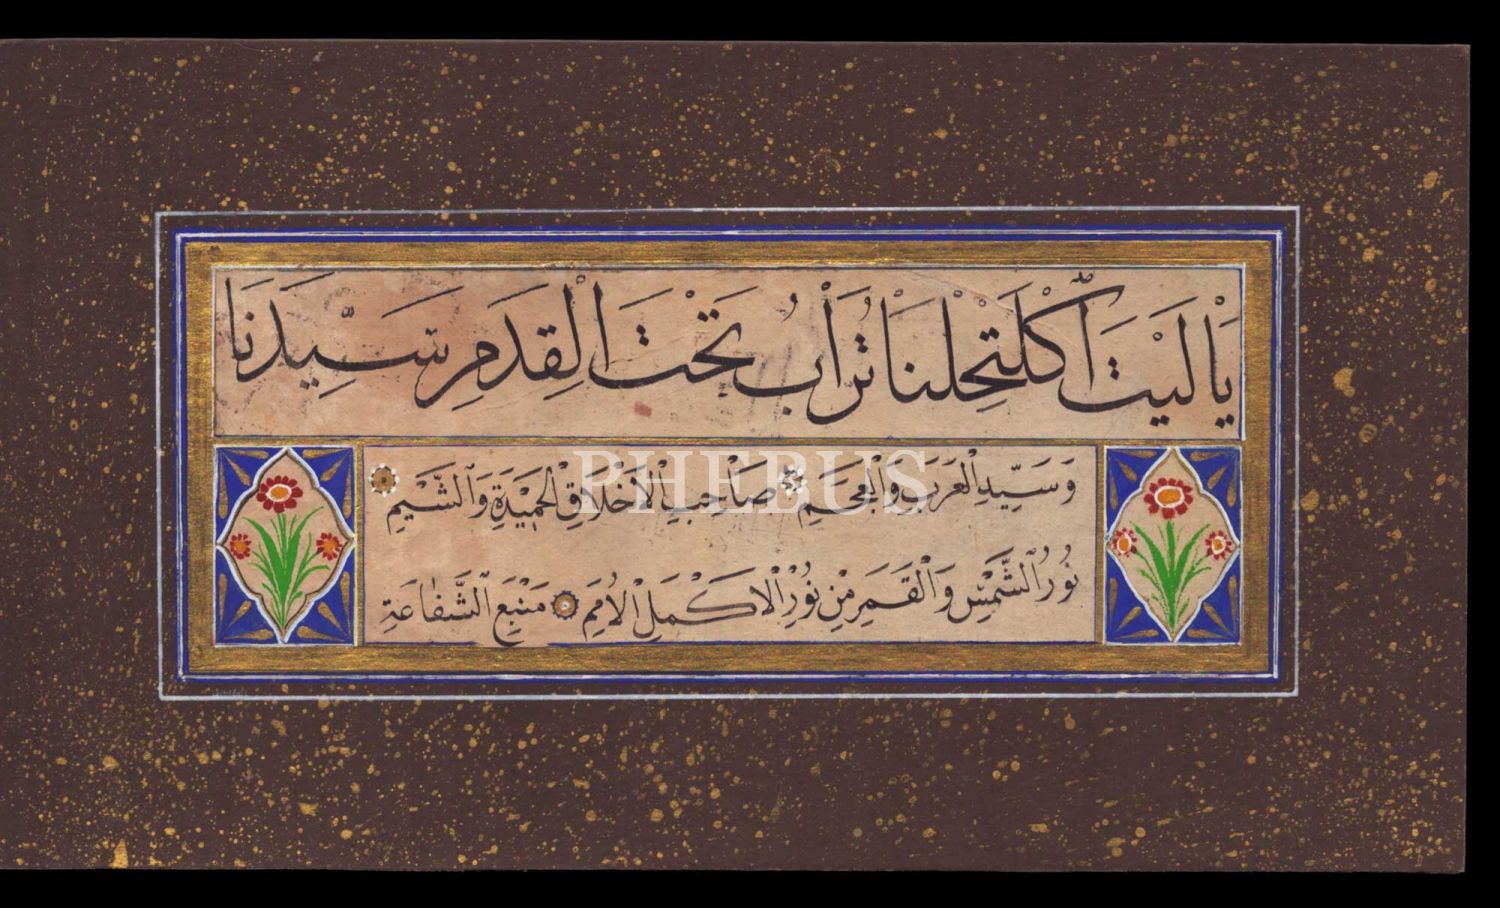 يَا لَيْتَ اكْتَحَلْنَا تُرَابُ تَحْتَ الْقِدَمِ سَيِّدَنَا
وَسَيِّدِ الْعَرَبِ وَالْعَجَمِ صَاحِبِ الْاَخْلَاقِ الْحَمِيْدَةِ وَالشَّيَمِ
نُورُ الشَّمْسِ وَالْقَمَرِ مِنْ نُورِ الْاَكْمَلِ الْاُمَمِ مَنْبَعِ الشَّفَاعَةِ
PHEBUS